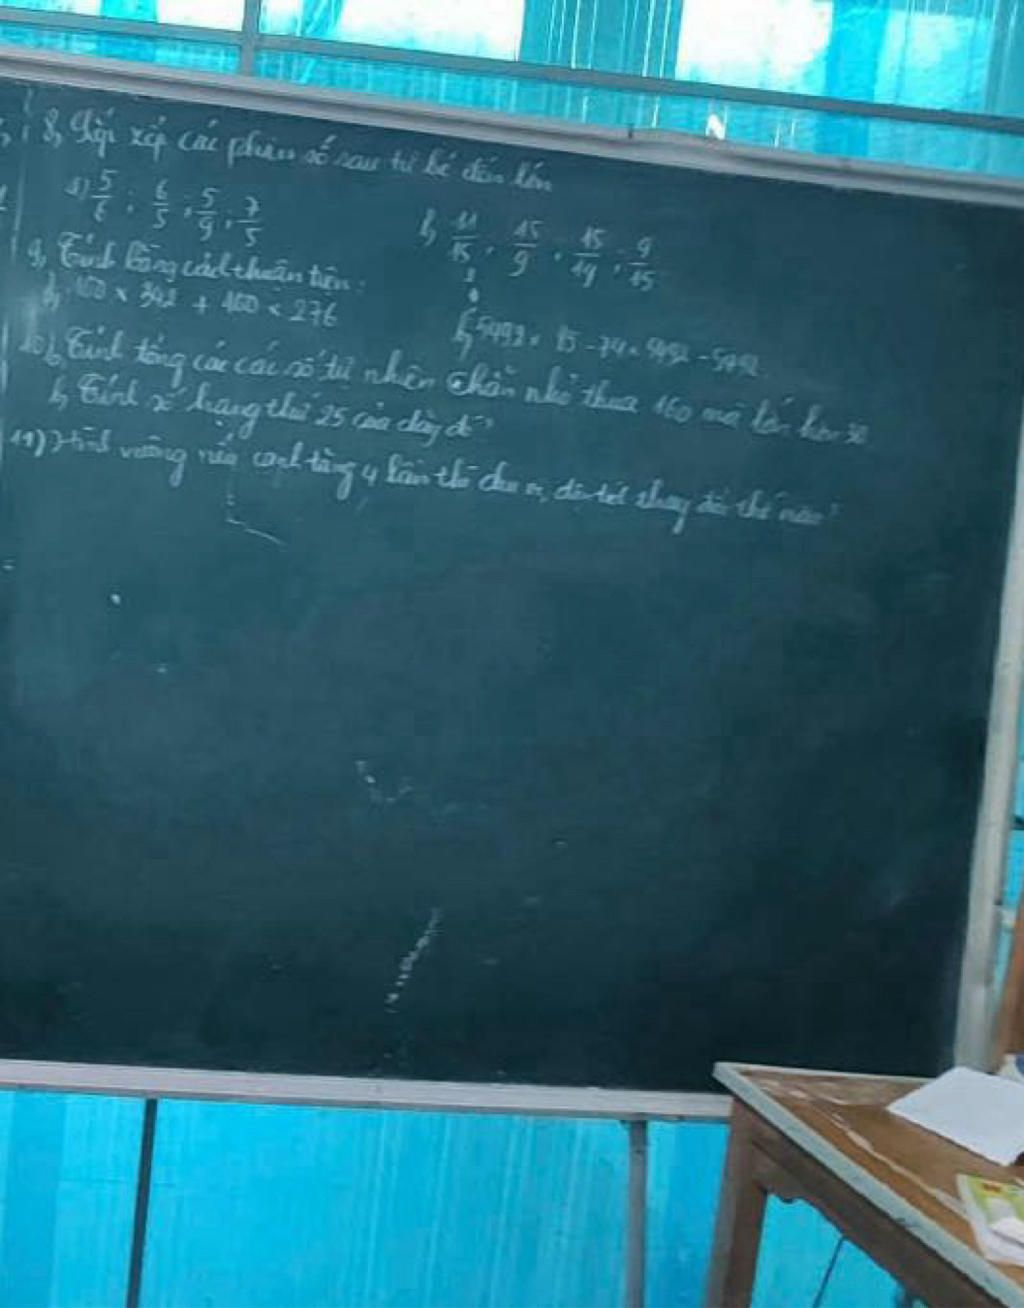 8, Sắp xếp các phân số sau từ bé đến lớn
a) 5/6 ; 6/5 ; 5/9 ; 7/5 b, 11/15 ; 15/9 ; 15/19 ; 9/15
9, Tính bằng cách thuận tiện:
× 342 + 160 × 276
b, × 75 - 74 ×
10, Tính tổng các các số tự nhiên chẵn nhỏ thua 160 mà lớn hơn 30
b, Tính số hạng thứ 25 của dãy đó?
11) Hình vuông nếu cạnh tăng 4 lần thì chu vi, diện tích thay đổi thế nào?